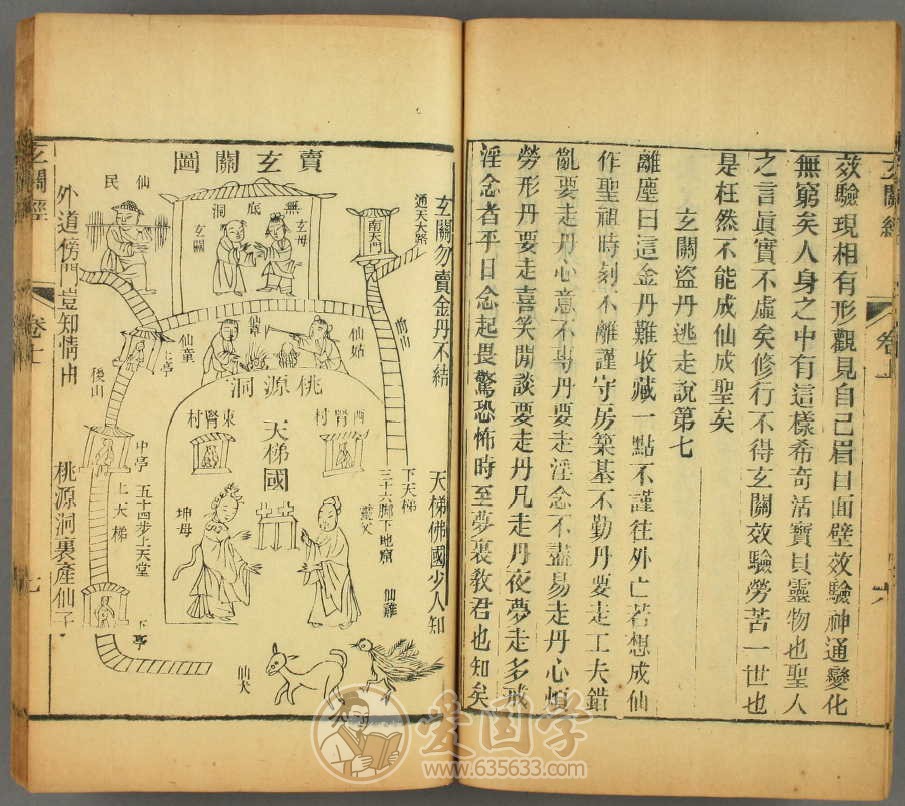 效驗現相有形觀見自己眉目面壁效驗神通變化
無窮矣人身之中有這樣希奇活寶貝靈物也聖人
之言眞實不虛矣修行不得玄關效驗勞苦一世也
是枉然不能成仙成聖矣
玄關盜丹逃走說第七
離塵曰這金丹難收藏一點不謹往外亡若想成仙
作聖祖時刻不離謹守房築基不勤丹要走工夫錯
亂要走丹心意不專丹要走淫念不盡易走丹心煩
勞形丹要走喜笑閒談要走丹凡走丹夜夢走多戒
淫念者平日念起畏驚恐怖時至夢裏教君也知矣
賣玄關圖
玄關勿賣金丹不結
天梯佛國少人知
通天大路
南天門
前山
無底洞
玄母
玄關
仙民
仙姑
仙童
上亭
後山
桃源洞
西腎村
東腎村
天梯國
靈父
坤母
下天梯
三十六脚下地窟
中亭
五十四步上天堂
上天梯
下亭
仙雞
仙犬
外道傍門豈知情由
桃源洞裏產仙子
玄關經
卷上
七
www.635633.com
愛国学